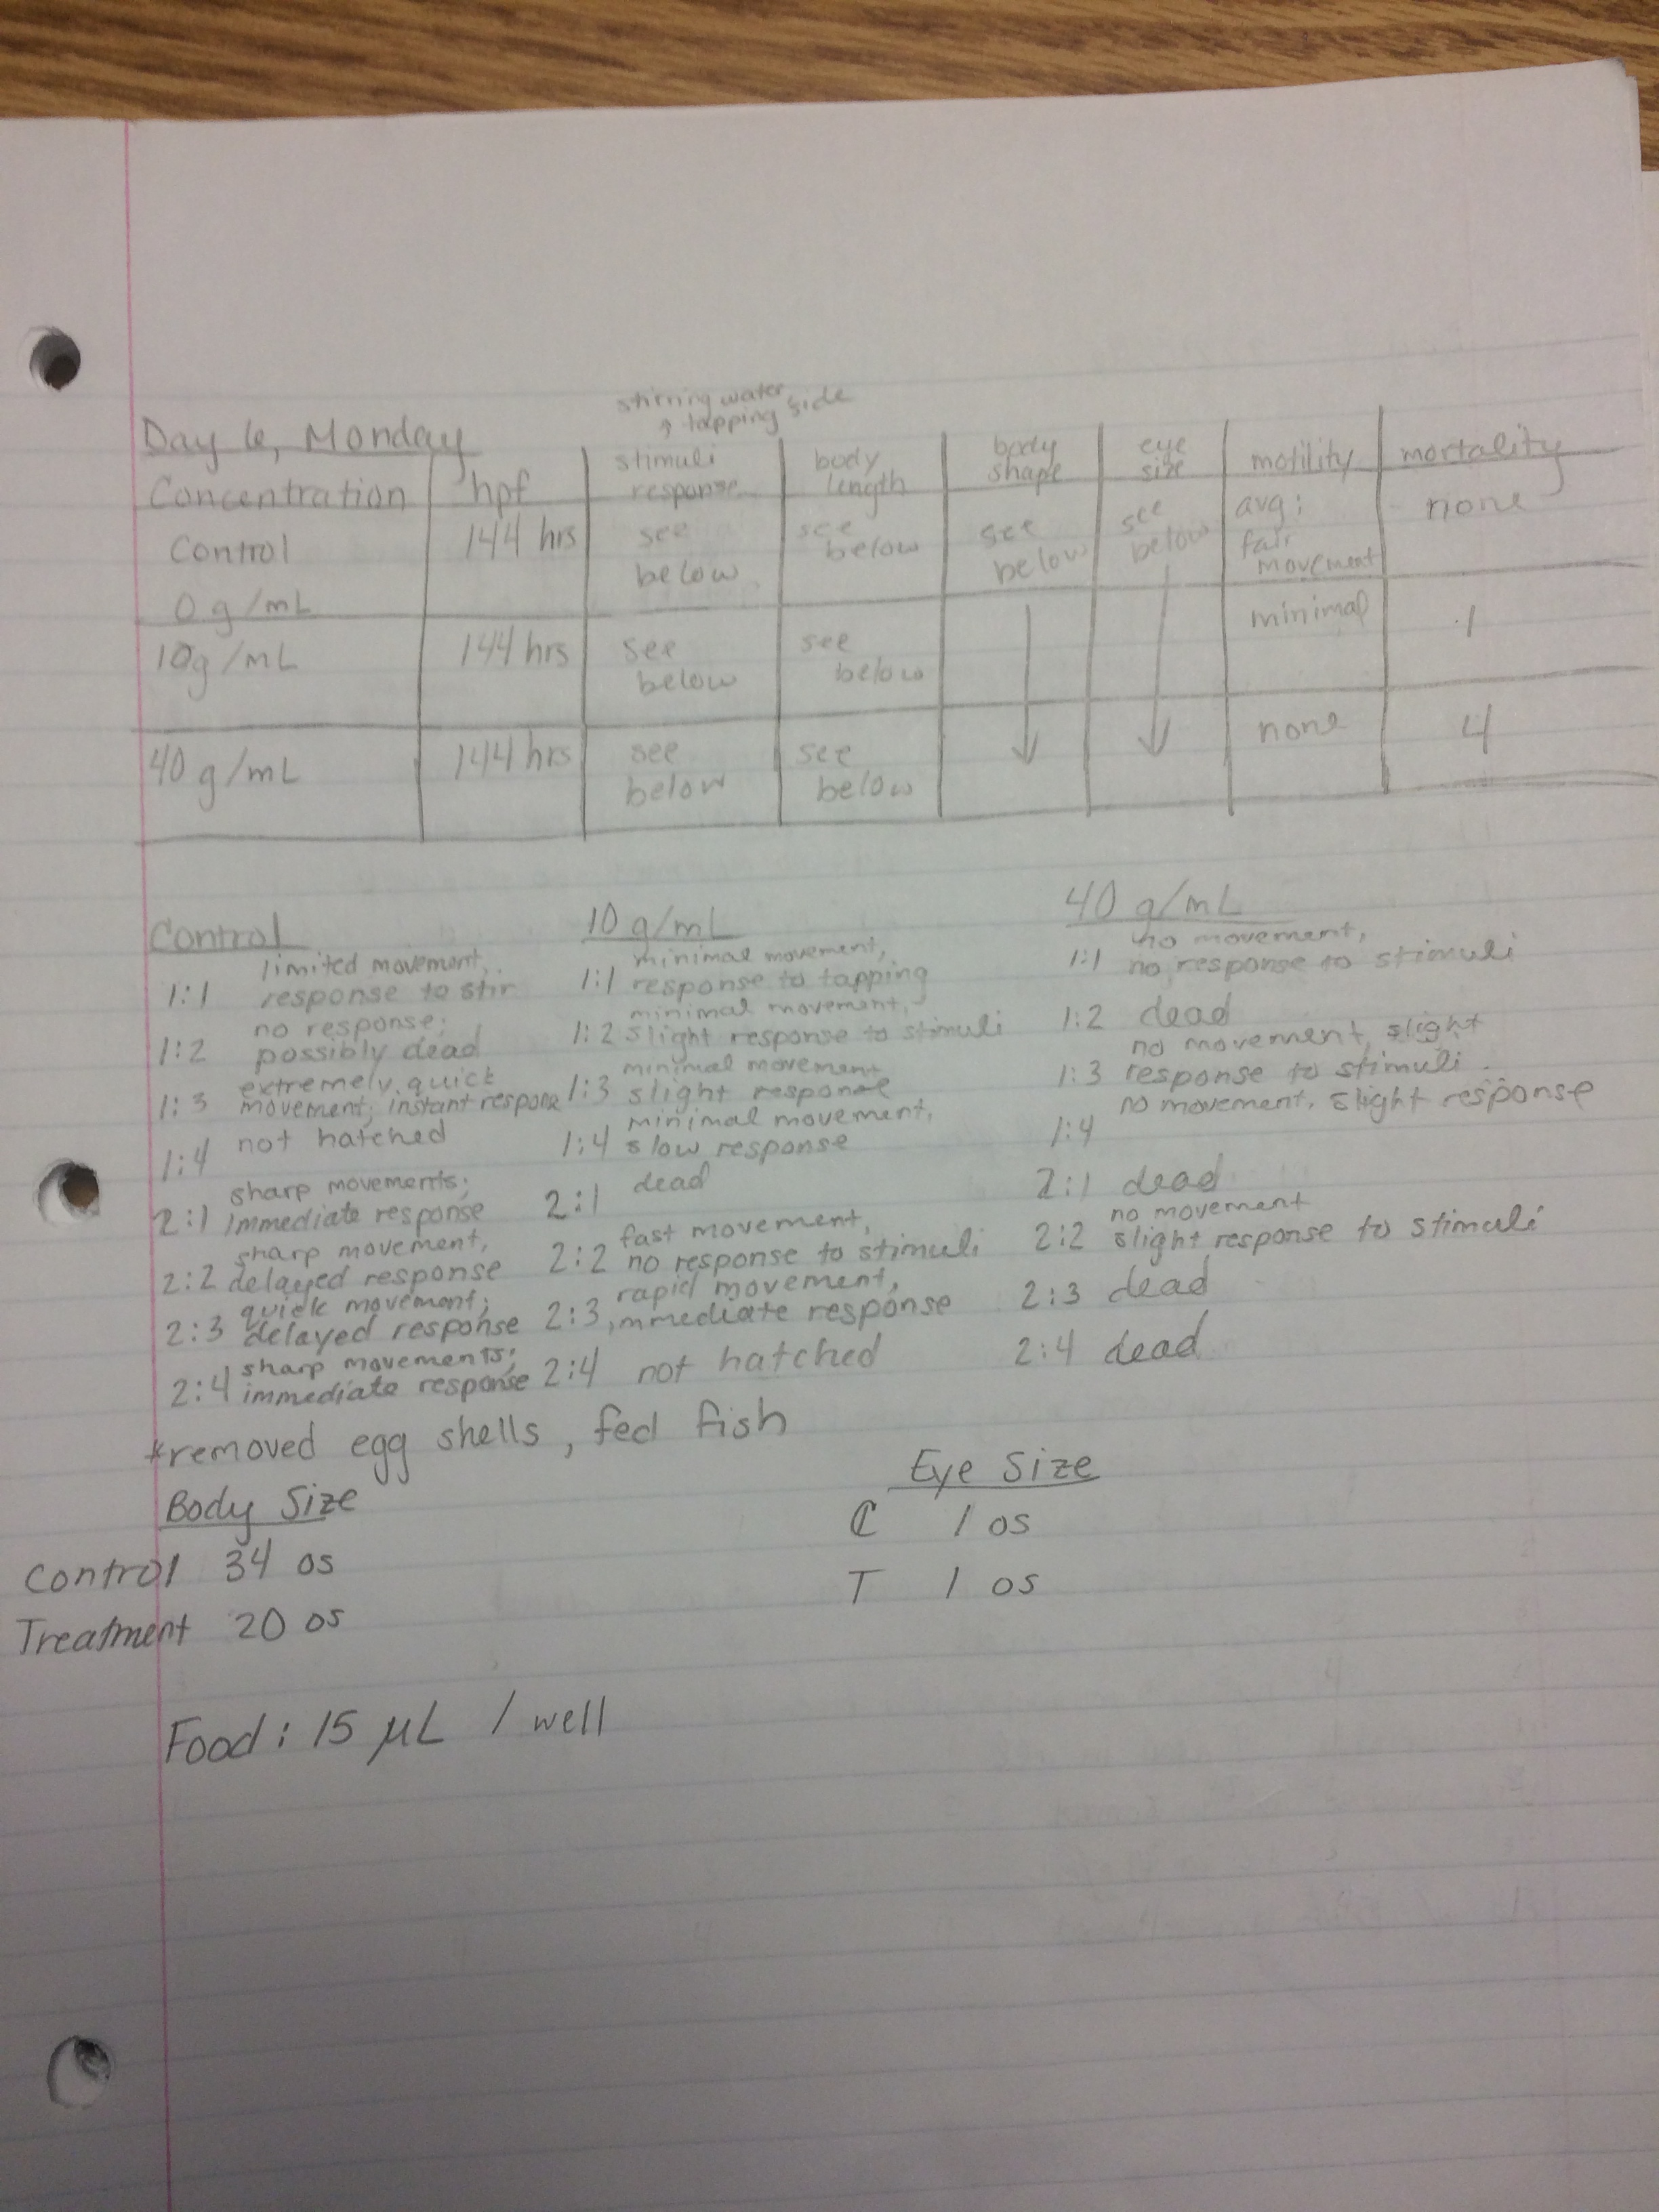 stirring water,
↗ tapping side
Day 6, Monday
Concentration hpf stimuli response body length body shape eye size motility mortality
Control 0 g/mL 144 hrs see below see below see below see below avg: fair movement none
10g/mL 144 hrs see below see below minimal 1
40 g/mL 144 hrs see below see below none 4
Control
1:1 limited movement, response to stir
1:2 no response; possibly dead
1:3 extremely quick movement; instant response
1:4 not hatched
2:1 sharp movements; immediate response
2:2 sharp movement, delayed response
2:3 quick movement; delayed response
2:4 sharp movements; immediate response
10 g/mL
1:1 minimal movement, response to tapping
1:2 minimal movement, slight response to stimuli
1:3 minimal movement slight response
1:4 minimal movement, slow response
2:1 dead
2:2 fast movement, no response to stimuli
2:3 rapid movement, immediate response
2:4 not hatched
40 g/mL
1:1 no movement, no response to stimuli
1:2 dead
1:3 no movement, slight response to stimuli
1:4 no movement, slight response
2:1 dead
2:2 no movement slight response to stimuli
2:3 dead
2:4 dead
*removed egg shells, fed fish
Body Size
Control 34 os
Treatment 20 os
Eye Size
C 1 os
T 1 os
Food: 15 μL / well